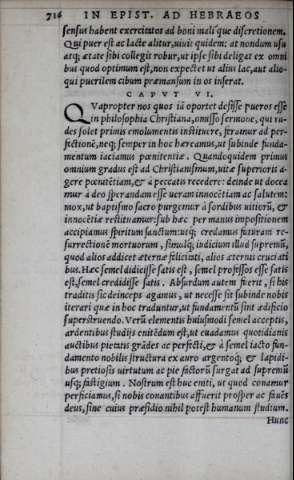 716 IN EPIST. AD HEBRAEOS
sensus habent exercitatos ad boni maliq́ue discretionem.
Qui puer est ac lacte alitur, uiuit quidem: at nondum usu
atq; ætate sibi collegit robur, ut ipse sibi deligat ex omni
bus quod optimum est, non expectet ut alius lac, aut alio-
qui puerilem cibum præmansum in os inserat.
CAPVT VI.
QVapropter nos quos iã oportet desisse pueros esse
in philosophia Christiana, omisso sermone, qui ru-
des solet primis emolumentis instituere, feramur ad per-
fectionẽ, neq; semper in hoc hæreamus, ut subinde funda-
mentum iaciamus pœnitentiæ. Quandoquidem primus
omnium gradus est ad Christianismum, uitæ superioris a-
gere pœnitẽtiam, & à peccatis recedere: deinde ut docea
mur à deo sperandam esse ueram innocẽtiam ac salutem:
mox, ut baptismo sacro purgemur à sordibus uitiorũ, &
innocẽtiæ restituamur: sub hæc per manus impositionem
accipiamus spiritum sanctum: utq; credamus futuram re-
surrectionẽ mortuorum, simulq; indicium illud supremũ,
quod alios addicet æternæ felicitati, alios æternis cruciati
bus. Hæc semel didicisse satis est, semel professos esse satis
est, semel credidisse satis. Absurdum autem fuerit, si his
traditis sic deinceps agamus, ut necesse sit subinde nobis
iterari quæ in hoc traduntur, ut fundamentũ sint ædificio
superstruendo. Verũ elementis huiusmodi semel acceptis,
ardentibus studijs enitẽdum est, ut euadamus quotidianis
auctibus pietatis grădes ac perfecti, & à semel iacto fun-
damento nobilis structura ex auro argentoq́; & lapidi-
bus pretiosis uirtutum ac pie factorũ surgat ad supremũ
usq; fastigium. Nostrum est huc eniti, ut quod conamur
perficiamus, si nobis conantibus affuerit prosper ac fauẽs
deus, sine cuius præsidio nihil potest humanum studium.
Hunc